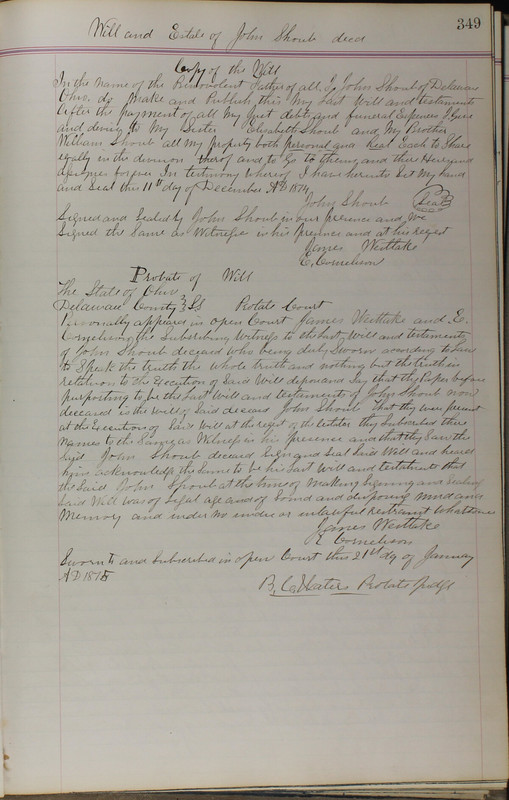 349
Will and Estate of John Shoub decd
Copy of the Will
In the name of the Benevolent Father of all, I, John Shoub of Delaware
Ohio, do Make and Publish this My Last Will and testament
After the payment of all My Just debts and funeral Expences I Give
and devise to My Sister Elizabeth Shoub and My Brother
William Shoub all My property both personal and Real Each to Share
eqally in the division therof and to Go to them and ther Heirs and
asignes forever In testimony wherof I have herunto Set My hand
and Seal this 11th day of December AD 1874
John Shoub Seal
Signed and Seald by John Shoub in our presence and we
Signed the Same as Witnesses in his Presence and at his reqest
James Westlake
E. Cornelison
Probate of Will
The State of Ohio
Delaware County } SS Probate Court
Personally appears in open Court James Westlake and E.
Cornelison the Subscribing Witness to the Last Will and testament
of John Shoub deceasd who being duly Sworn according to Law
to Speak the truth the whole truth and nothing but the truth in
relation to the Execution of Said Will depose and Say that the Paper before
purporting to be the Last Will and testament of John Shoub now
deceasd is the will of Said deceasd John Shoub that they were present
at the Execution of Said Will at the reqest of the testator they Subscribed there
names to the Same as Witnesses in his Presence and that they Saw the
Said John Shoub deceasd Sign and Seal Said Will and heard
him acknowledge the Same to be his Last Will and testament that
the Said John Shoub at the time of Making Signing and Sealing
Said Will was of Legal age and of Sound and disposing mind and
Memory and under no undue or unlawful restraint whatever
James Westlake
E Cornelison
Sworn to and Subscribed in open Court this 21st day of January
AD 1875
B. C. Waters Probate Judge